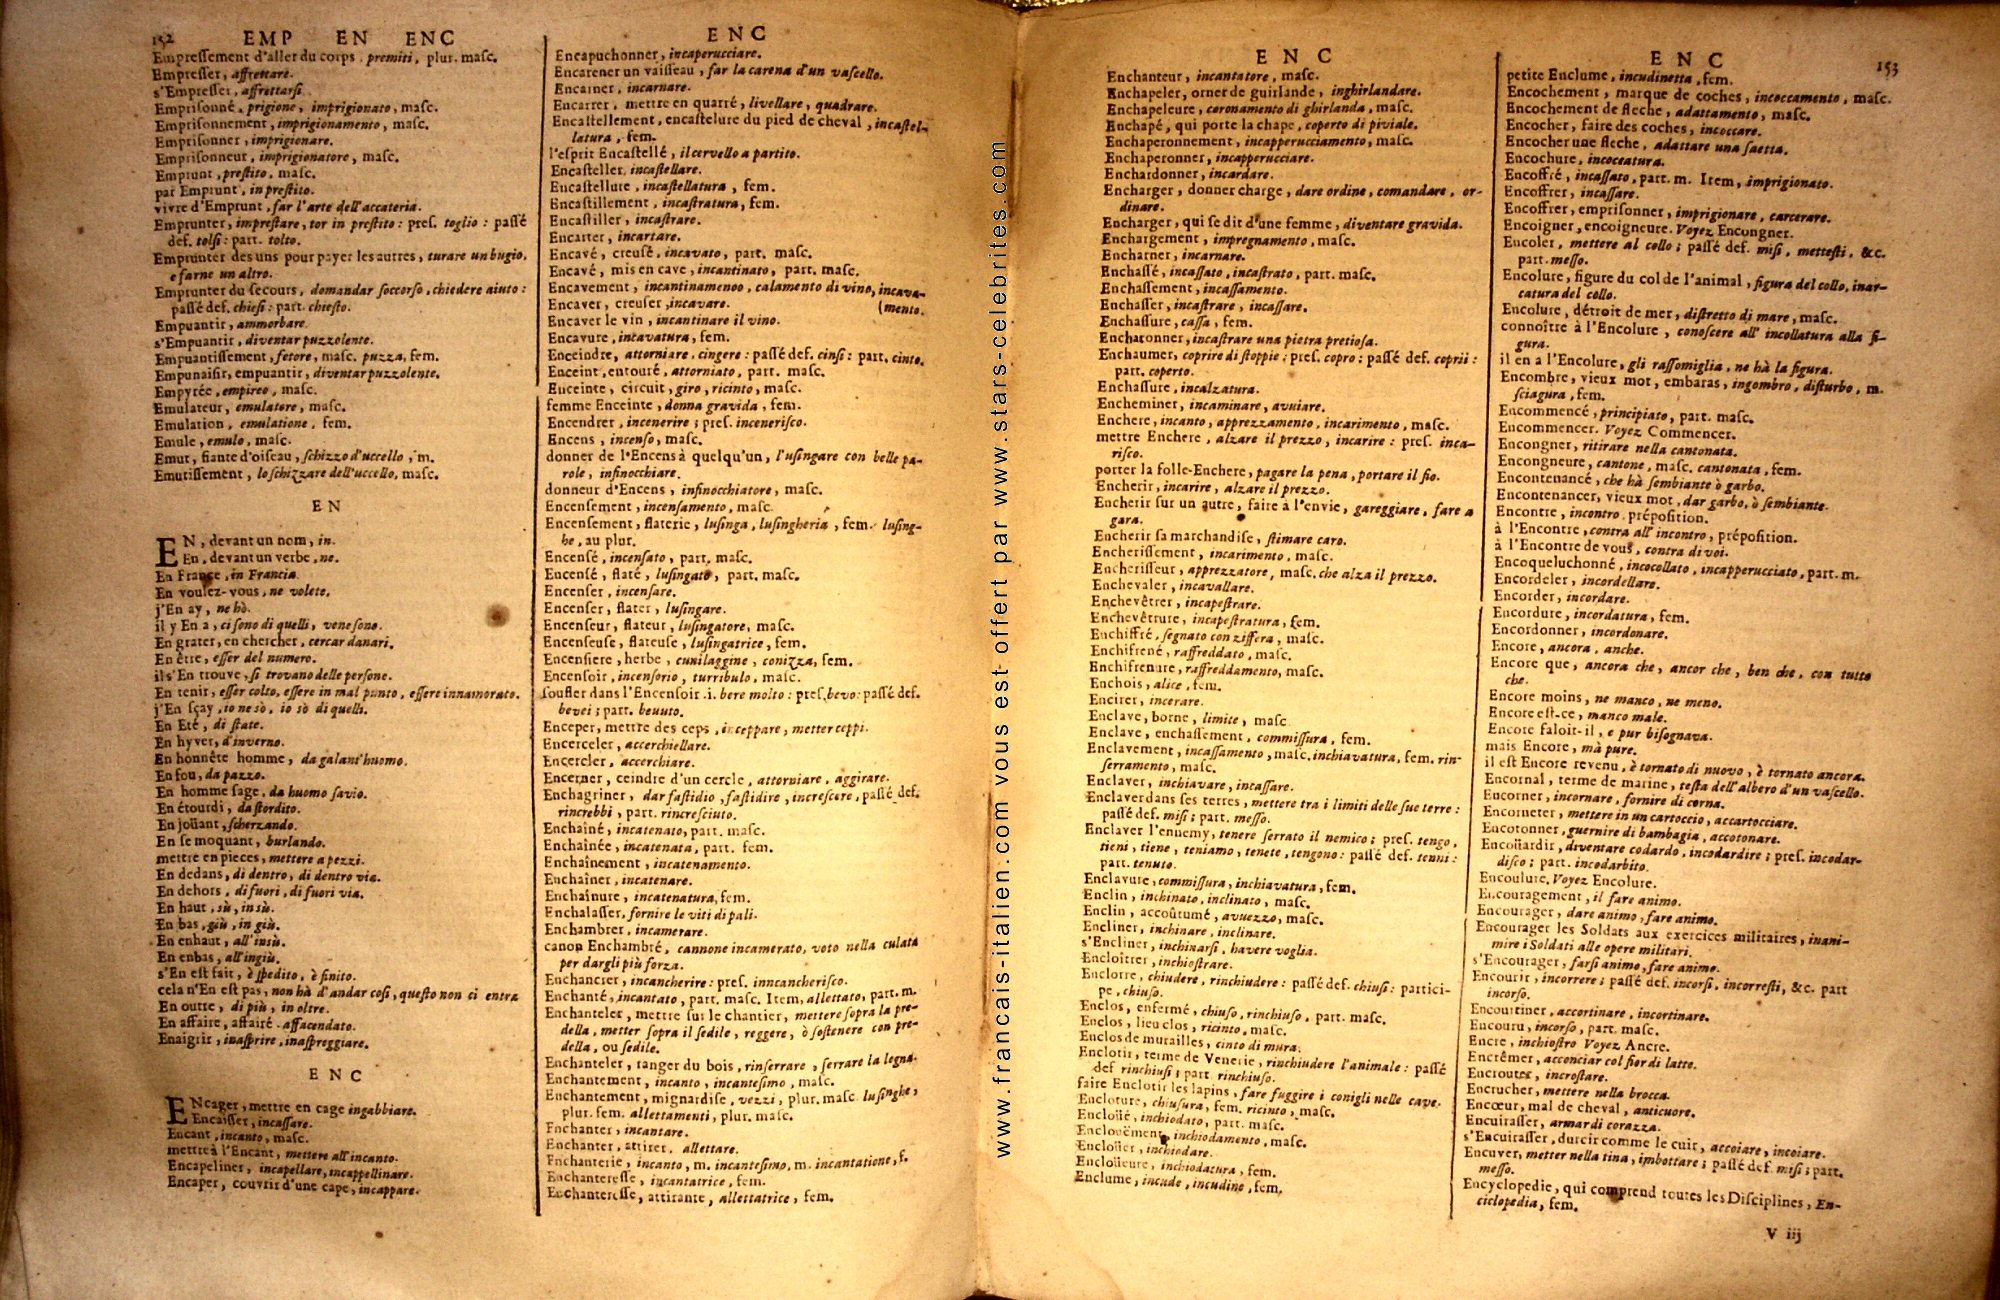 152 EMP EN ENC
Empreſſement d'aller du corps, premiti, plur. maſc.
Empreſſer, affrettare.
s'Empreſſer, affrettarſi.
Empriſonné, prigione, imprigionato, maſc.
Empriſonnement, imprigionamento, maſc.
Empriſonner, imprigionare.
Empriſonneur, imprigionatore, maſc.
Emprunt, preſtito, maſc.
par Emprunt, in preſtito.
vivre d'Emprunt, far l'arte dell'accateria.
Emprunter, impreſtare, tor in preſtito: preſ. toglio: paſſé
def. tolſi: part. tolto.
Emprunter des uns pour payer les autres, turare un bugio,
e farne un altro.
Emprunter du ſecours, domandar ſoccorſo, chiedere aiuto:
paſſé def. chieſi: part. chieſto.
Empuantir, ammorbare.
s'Empuantir, diventar puzzolente.
Empuantiſſement, fetore, maſc. puzza, fem.
Empunaiſir, empuantir, diventar puzzolente.
Empyrée, empireo, maſc.
Emulateur, emulatore, maſc.
Emulation, emulatione, fem.
Emule, emulo, maſc.
Emut, fiante d'oiſeau, ſchizzo d'uccello, m.
Emutiſſement, lo ſchizzare dell'uccello, maſc.
EN
EN, devant un nom, in.
En, devant un verbe, ne.
En France, in Francia.
En voulez-vous, ne volete.
j'En ay, ne hò.
il y En a, ci ſono di quelli, vene ſono.
En grater, en chercher, cercar danari.
En être, eſſer del numero.
il s'En trouve, ſi trovano delle perſone.
En tenir, eſſer colto, eſſere in mal punto, eſſere innamorato.
j'En ſçay, io ne sò, io sò di quelli.
En Eté, di ſtate.
En hyver, d'inverno.
En honnête homme, da galant'huomo.
En fou, da pazzo.
En homme ſage, da huomo ſavio.
En étourdi, da ſtordito.
En joüant, ſcherzando.
En ſe moquant, burlando.
mettre en pieces, mettere a pezzi.
En dedans, di dentro, di dentro via.
En dehors, di fuori, di fuori via.
En haut, sù, in sù.
En bas, giù, in giù.
En enhaut, all'insù.
En enbas, all'ingiù.
s'En eſt fait, è ſpedito, è finito.
cela n'En eſt pas, non hà d'andar coſi, queſto non ci entra
En outre, di più, in oltre.
En affaire, affairé, affacendato.
Enaigrir, inaſprire, inaſpreggiare.
ENC
ENcager, mettre en cage ingabbiare.
Encaiſſer, incaſſare.
Encant, incanto, maſc.
mettre à l'Encant, mettere all'incanto.
Encapeliner, incapellare, incappellinare.
Encaper, couvrir d'une cape, incappare.
ENC
Encapuchonner, incaperucciare.
Encarener un vaiſſeau, far la carena d'un vaſcello.
Encarner, incarnare.
Encarrer, mettre en quarré, livellare, quadrare.
Encaſtellement, encaſtelure du pied de cheval, incaſtel-
latura, fem.
l'eſprit Encaſtellé, il cervello a partito.
Encaſteller, incaſtellare.
Encaſtellure, incaſtellatura, fem.
Encaſtillement, incaſtratura, fem.
Encaſtiller, incaſtrare.
Encarter, incartare.
Encavé, creuſé, incavato, part. maſc.
Encavé, mis en cave, incantinato, part. maſc.
Encavement, incantinamenoo, calamento di vino, incava-
Encaver, creuſer, incavare. (mento.
Encaver le vin, incantinare il vino.
Encavure, incavatura, fem.
Enceindre, attorniare, cingere: paſſé def. cinſi: part. cinto.
Enceint, entouré, attorniato, part. maſc.
Enceinte, circuit, giro, ricinto, maſc.
femme Enceinte, donna gravida, fem.
Encendrer, incenerire; preſ. inceneriſco.
Encens, incenſo, maſc.
donner de l'Encens à quelqu'un, l'uſingare con belle pa-
role, infinocchiare.
donneur d'Encens, infinocchiatore, maſc.
Encenſement, incenſamento, maſc.
Encenſement, flaterie, luſinga, luſingheria, fem. luſing-
he, au plur.
Encenſé, incenſato, part. maſc.
Encenſé, flaté, luſingato, part. maſc.
Encenſer, incenſare.
Encenſer, flater, luſingare.
Encenſeur, flateur, luſingatore, maſc.
Encenſeuſe, flateuſe, luſingatrice, fem.
Encenſiere, herbe, cunilaggine, conizza, fem.
Encenſoir, incenſorio, turribulo, maſc.
ſoufler dans l'Encenſoir .i. bere molto: preſ. bevo: paſſé def.
bevei; part. beuuto.
Enceper, mettre des ceps, inceppare, metter ceppi.
Encerceler, accerchiellare.
Encercler, accerchiare.
Encerner, ceindre d'un cercle, attorniare, aggirare.
Enchagriner, dar faſtidio, faſtidire, increſcere, paſſé def.
rincrebbi, part. rincreſciuto.
Enchaîné, incatenato, part. maſc.
Enchaînée, incatenata, part. fem.
Enchaînement, incatenamento.
Enchaîner, incatenare.
Enchaînure, incatenatura, fem.
Enchalaſſer, fornire le viti di pali.
Enchambrer, incamerare.
canon Enchambré, cannone incamerato, voto nella culata
per dargli più forza.
Enchancrer, incancherire: preſ. inncancheriſco.
Enchanté, incantato, part. maſc. Item, allettato, part. m.
Enchanteler, mettre ſur le chantier, mettere ſopra la pre-
della, metter ſopra il ſedile, reggere, ò ſoſtenere con pre-
della, ou ſedile.
Enchanteler, ranger du bois, rinſerrare, ſerrare la legna.
Enchantement, incanto, incanteſimo, maſc.
Enchantement, mignardiſe, vezzi, plur. maſc. luſinghe,
plur. fem. allettamenti, plur. maſc.
Enchanter, incantare.
Enchanter, attirer, allettare.
Enchanterie, incanto, m. incanteſimo, m. incantatione, f.
Enchantereſſe, incantatrice, fem.
Enchantereſſe, attirante, allettatrice, fem.
www.francais-italien.com vous est offert par www.stars-celebrites.com
ENC
Enchanteur, incantatore, maſc.
Enchapeler, orner de guirlande, inghirlandare.
Enchapeleure, coronamento di ghirlanda, maſc.
Enchapé, qui porte la chape, coperto di piviale.
Enchaperonnement, incapperucciamento, maſc.
Enchaperonner, incapperucciare.
Enchardonner, incardare.
Encharger, donner charge, dare ordine, comandare, or-
dinare.
Encharger, qui ſe dit d'une femme, diventare gravida.
Enchargement, impregnamento, maſc.
Encharner, incarnare.
Enchaſſé, incaſſato, incaſtrato, part. maſc.
Enchaſſement, incaſſamento.
Enchaſſer, incaſtrare, incaſſare.
Enchaſſure, caſſa, fem.
Enchatonner, incaſtrare una pietra pretioſa.
Enchaumer, coprire di ſtoppie; preſ. copro: paſſé def. coprii:
part. coperto.
Enchaſſure, incalzatura.
Encheminer, incaminare, avuiare.
Enchere, incanto, apprezzamento, incarimento, maſc.
mettre Enchere, alzare il prezzo, incarire: preſ. inca-
riſco.
porter la folle-Enchere, pagare la pena, portare il fio.
Encherir, incarire, alzare il prezzo.
Encherir ſur un autre, faire à l'envie, gareggiare, fare a
gara.
Encherir ſa marchandiſe, ſtimare caro.
Encheriſſement, incarimento, maſc.
Encheriſſeur, apprezzatore, maſc. che alza il prezzo.
Enchevaler, incavallare.
Enchevêtrer, incapeſtrare.
Enchevêtrure, incapeſtratura, fem.
Enchiffré, ſegnato con ziffera, maſc.
Enchifrené, raffreddato, maſc.
Enchifrenure, raffreddamento, maſc.
Enchois, alice, fem.
Encirer, incerare.
Enclave, borne, limite, maſc.
Enclave, enchaſſement, commiſſura, fem.
Enclavement, incaſſamento, maſc. inchiavatura, fem. rin-
ſerramento, maſc.
Enclaver, inchiavare, incaſſare.
Enclaver dans ſes terres, mettere tra i limiti delle ſue terre:
paſſé def. miſi; part. meſſo.
Enclaver l'ennemy, tenere ſerrato il nemico; preſ. tengo,
tieni, tiene, teniamo, tenete, tengono: paſſé def. tenni:
part. tenuto.
Enclavure, commiſſura, inchiavatura, fem.
Enclin, inchinato, inclinato, maſc.
Enclin, accoûtumé, avuezzo, maſc.
Encliner, inchinare, inclinare.
s'Encliner, inchinarſi, havere voglia.
Encloîtrer, inchioſtrare.
Enclorre, chiudere, rinchiudere: paſſé def. chiuſi: partici-
pe, chiuſo.
Enclos, enfermé, chiuſo, rinchiuſo, part. maſc.
Enclos, lieu clos, ricinto, maſc.
Enclos de murailles, cinto di mura.
Enclotir, terme de Venerie, rinchiudere l'animale: paſſé
def rinchiuſi; part. rinchiuſo.
faire Enclotir les lapins, fare fuggire i conigli nelle cave.
Encloture, chiuſura, fem. ricinto, maſc.
Encloüé, inchiodato, part. maſc.
Enclouëment, inchiodamento, maſc.
Encloüer, inchiodare.
Encloüeure, inchiodatura, fem.
Enclume, incude, incudine, fem.
ENC 153
petite Enclume, incudinetta, fem.
Encochement, marque de coches, incoccamento, maſc.
Encochement de fleche, adattamento, maſc.
Encocher, faire des coches, incoccare.
Encocher une fleche, adattare una ſaetta.
Encochure, incoceatura.
Encoffré, incaſſato, part. m. Item, imprigionato.
Encoffrer, incaſſare.
Encoffrer, empriſonner, imprigionare, carcerare.
Encoigner, encoigneure. Voyez Encongner.
Encoler, mettere al collo; paſſé def. miſi, metteſti, &c.
part. meſſo.
Encolure, figure du col de l'animal, figura del collo, inar-
catura del collo.
Encolure, détroit de mer, diſtretto di mare, maſc.
connoître à l'Encolure, conoſcere all' incollatura alla fi-
gura.
il en a l'Encolure, gli raſſomiglia, ne hà la figura.
Encombre, vieux mot, embaras, ingombro, diſturbo, m.
ſciagura, fem.
Encommencé, principiato, part. maſc.
Encommencer. Voyez Commencer.
Encongner, ritirare nella cantonata.
Encongneure, cantone, maſc. cantonata, fem.
Encontenancé, che hà ſembiante ò garbo.
Encontenancer, vieux mot, dar garbo, ò ſembiante.
Encontre, incontro, prépoſition.
à l'Encontre, contra all' incontro, prépoſition.
à l'Encontre de vous, contra di voi.
Encoqueluchonné, incocollato, incapperucciato, part. m.
Encordeler, incordellare.
Encorder, incordare.
Encordure, incordatura, fem.
Encordonner, incordonare.
Encore, ancora, anche.
Encore que, ancora che, ancor che, ben che, con tutto
che.
Encore moins, ne manco, ne meno.
Encore eſt-ce, manco male.
Encore faloit-il, e pur biſognava.
mais Encore, mà pure.
il eſt Encore revenu, è tornato di nuovo, è tornato ancora.
Encornal, terme de marine, teſta dell'albero d'un vaſcello.
Encorner, incornare, fornire di corna.
Encorneter, mettere in un cartoccio, accartocciare.
Encotonner, guernire di bambagia, accotonare.
Encoüardir, diventare codardo, incodardire; preſ. incodar-
diſco; part. incodarbito.
Encoulure, Voyez Encolure.
Encouragement, il fare animo.
Encourager, dare animo, fare animo.
Encourager les Soldats aux exercices militaires, inani-
mire i Soldati alle opere militari.
s'Encourager, farſi animo, fare animo.
Encourir, incorrere; paſſé def. incorſi, incorreſti, &c. part
incorſo.
Encourtiner, accortinare, incortinare.
Encouru, incorſo, part. maſc.
Encre, inchioſtro Voyez Ancre.
Encrêmer, acconciar col fior di latte.
Encrouter, incroſtare.
Encrucher, mettere nella brocca.
Encœur, mal de cheval, anticuore.
Encuiraſſer, armar di corazza.
s'Encuiraſſer, durcir comme le cuir, accoiare, incoiare.
Encuver, metter nella tina, imbottare; paſſé def. miſi; part.
meſſo.
Encyclopedie, qui comprend toutes les Diſciplines, En-
ciclopedia, fem.
V iij